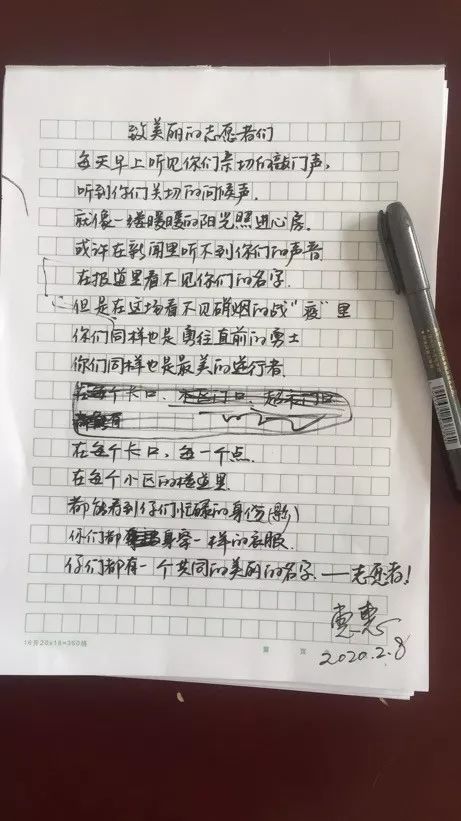 致美丽的志愿者们
每天早上听见你们亲切的敲门声,
听到你们关切的问候声.
就像一缕暖暖的阳光照进心房.
或许在新闻里听不到你们的声音
在报道里看不见你们的名字.
但是在这场看不见硝烟的战"疫"里
你们同样也是勇往直前的勇士
你们同样也是最美的逆行者.
在每个卡口,
在每个卡口,每一个点.
在每个小区的楼道里.
都能看到你们忙碌的身份(影)
你们都身穿一样的衣服.
你们都有一个共同的美丽的名字.——志愿者!
2020.2.8
16开20×18=360格
第 页